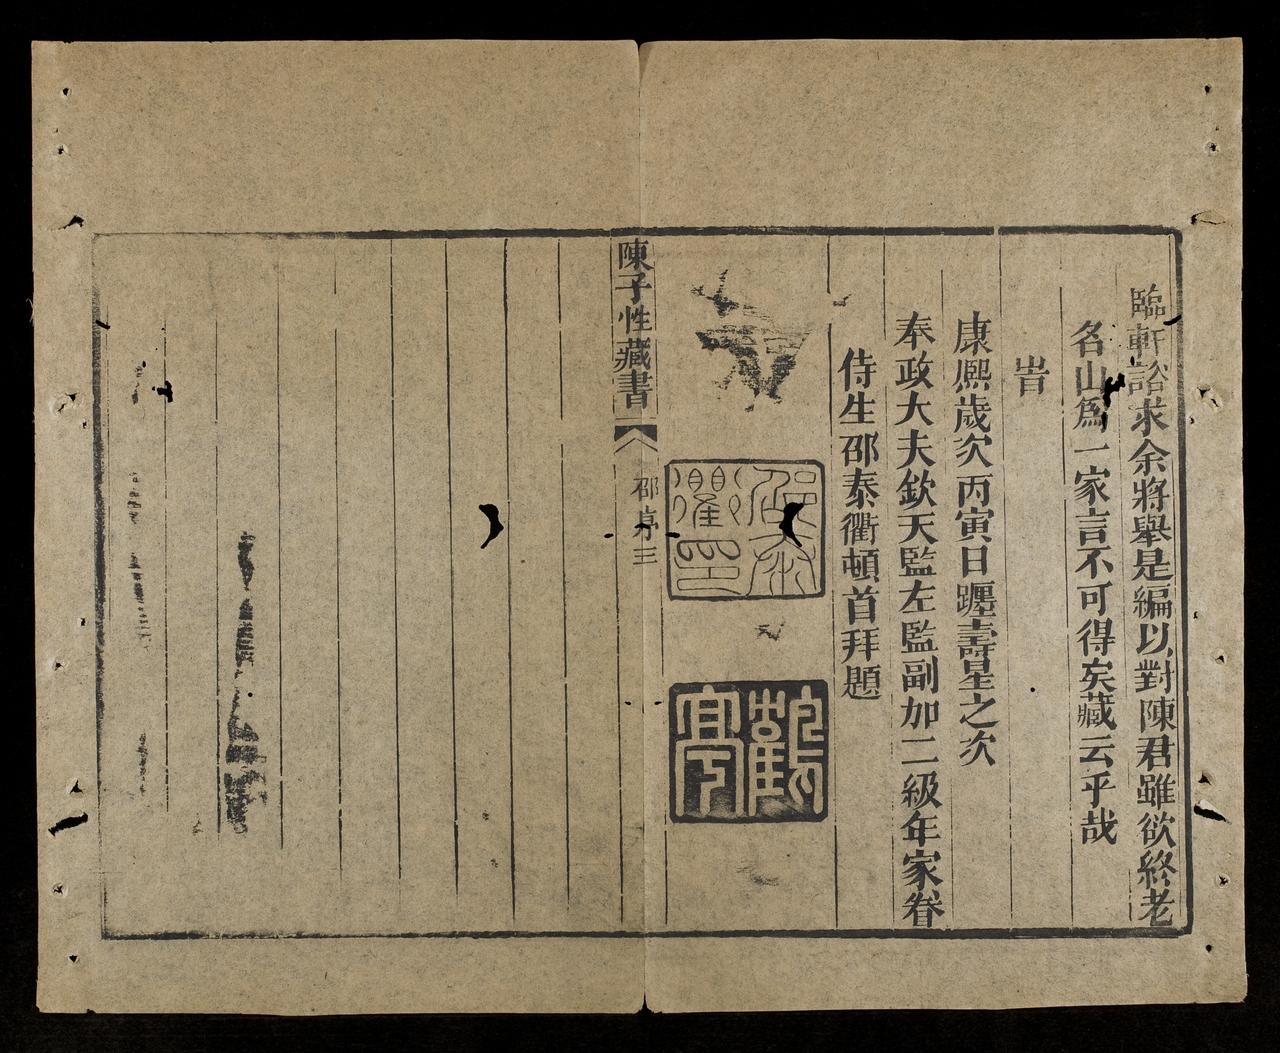 臨軒諮求余將舉是編以對陳君雖欲終老
名山爲一家言不可得矣藏云乎哉
旹
康熙歲次丙寅日躔壽星之次
奉政大夫欽天監左監副加二級年家眷
侍生邵泰衢頓首拜題
邵泰衢印
鶴亭
陳子性藏書
邵序
三